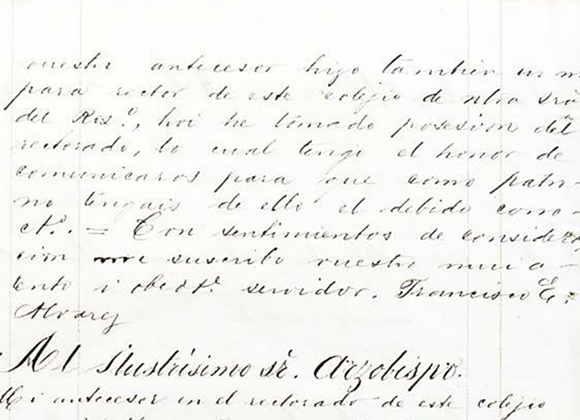 vuestro antecesor hizo tambien un n
para rector de este colejio de ntra Sra
del Ros.º, hoi he tomado posesion del
rectorado, lo cual tengo el honor de
comunicaros para que como patro-
no tengais de ello el debido cono-
ct.º = Con sentimientos de considera
cion me suscribo vuestro mui a-
tento i obedt.e servidor. Francisco E.
Alvarez
Al Ilustrísimo sr. Arzobispo.
Mi antecesor en el rectorado de este colejio